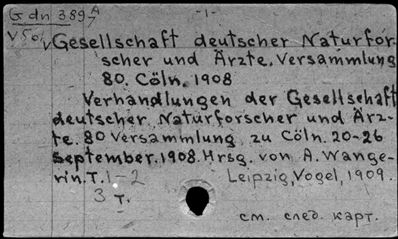 G dn 389
-1-
Gesellschaft deutscher Naturfor-
scher und Ärzte. Versammlung
80. Cöln. 1908
Verhandlungen der Gesellschaft
deutscher Naturforscher und Ärz-
te. 80 Versammlung zu Cöln. 20-26
September. 1908. Hrsg. von A. Wange-
rin. T. 1-2 Leipzig, Vogel, 1909.
3 т.
см. след. карт.